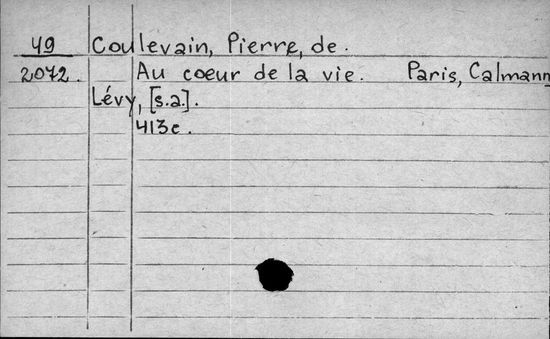 49 Coulevain, Pierre, de.
2072. Au coeur de la vie. Paris, Calmann
Lévy, [s.a.].
413c.